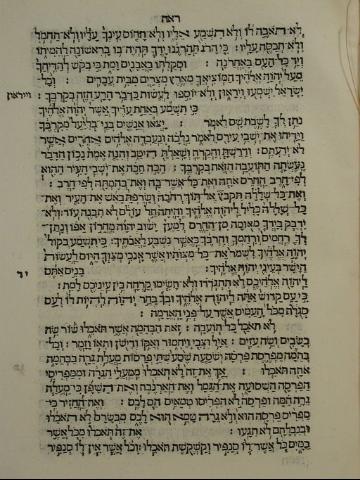 ראה
לא תאבה לו ולא תשמע אליו ולא תחוס עינך עליו ולא תחמל
ולא תכסה עליו: כי הרג תהרגנו ידך תהיה בו בראשונה להמיתו
ויד כל העם באחרנה: וסקלתו באבנים ומת כי בקש להדיחך
מעל יהוה אלהיך המוציאך מארץ מצרים מבית עבדים: וכל
ישראל ישמעו ויראון ולא יוספו לעשות כדבר הרע הזה בקרבך:
וייראון
כי תשמע באחת עריך אשר יהוה אלהיך
נתן לך לשבת שם לאמר: יצאו אנשים בני בליעל מקרבך
וידיחו את ישבי עירם לאמר נלכה ונעבדה אלהים אחרים אשר
לא ידעתם: ודרשת וחקרת ושאלת היטב והנה אמת נכון הדבר
נעשתה התועבה הזאת בקרבך: הכה תכה את ישבי העיר ההוא
לפי חרב החרם אתה ואת כל אשר בה ואת בהמתה לפי חרב:
ואת כל שללה תקבץ אל תוך רחבה ושרפת באש את העיר ואת
כל שללה כליל ליהוה אלהיך והיתה תל עולם לא תבנה עוד: ולא
ידבק בידך מאומה מן החרם למען ישוב יהוה מחרון אפו ונתן
לך רחמים ורחמך והרבך כאשר נשבע לאבתיך: כי תשמע בקול
יהוה אלהיך לשמר את כל מצותיו אשר אנכי מצוך היום לעשות
הישר בעיני יהוה אלהיך: בנים אתם
יד
ליהוה אלהיכם לא תתגדדו ולא תשימו קרחה בין עיניכם למת:
כי עם קדוש אתה ליהוה אלהיך ובך בחר יהוה להיות לו לעם
סגלה מכל העמים אשר על פני האדמה:
לא תאכל כל תועבה: זאת הבהמה אשר תאכלו שור שה
כשבים ושה עזים: איל וצבי ויחמור ואקו ודישן ותאו וזמר: וכל
בהמה מפרסת פרסה ושסעת שסע שתי פרסות מעלת גרה בבהמה
אתה תאכלו: אך את זה לא תאכלו ממעלי הגרה וממפריסי
הפרסה השסועה את הגמל ואת הארנבת ואת השפן כי מעלה
גרה המה ופרסה לא הפריסו טמאים הם לכם: ואת החזיר כי
מפריס פרסה הוא ולא גרה טמא הוא לכם מבשרם לא תאכלו
ובנבלתם לא תגעו: את זה תאכלו מכל אשר
במים כל אשר לו סנפיר וקשקשת תאכלו: וכל אשר אין לו סנפיר